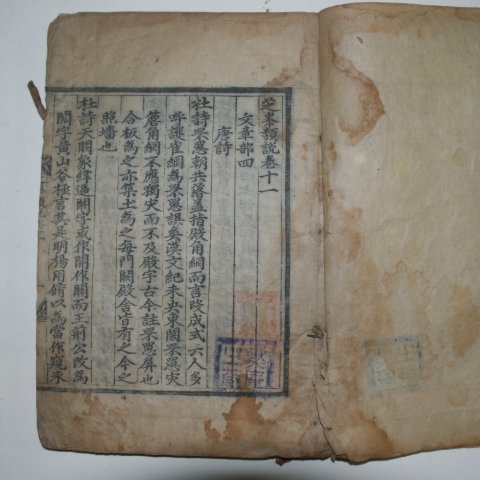 芝峯類說卷十一
文章部四
唐詩
杜詩罘罳朝共落盖指殿角網而言段成式云人多
呼護雀網爲罘罳誤矣漢文紀未央東闕罘罳灾
舊角網不應獨灾而不及殿宇古今註罘罳屏也
合板爲之亦築土爲之每門闕殿舍皆有之今之
照墻也
杜詩天闕象緯逼闕字或作開作關而王荊公改爲
閱字黃山谷極言其是明楊用脩以爲當作窺未